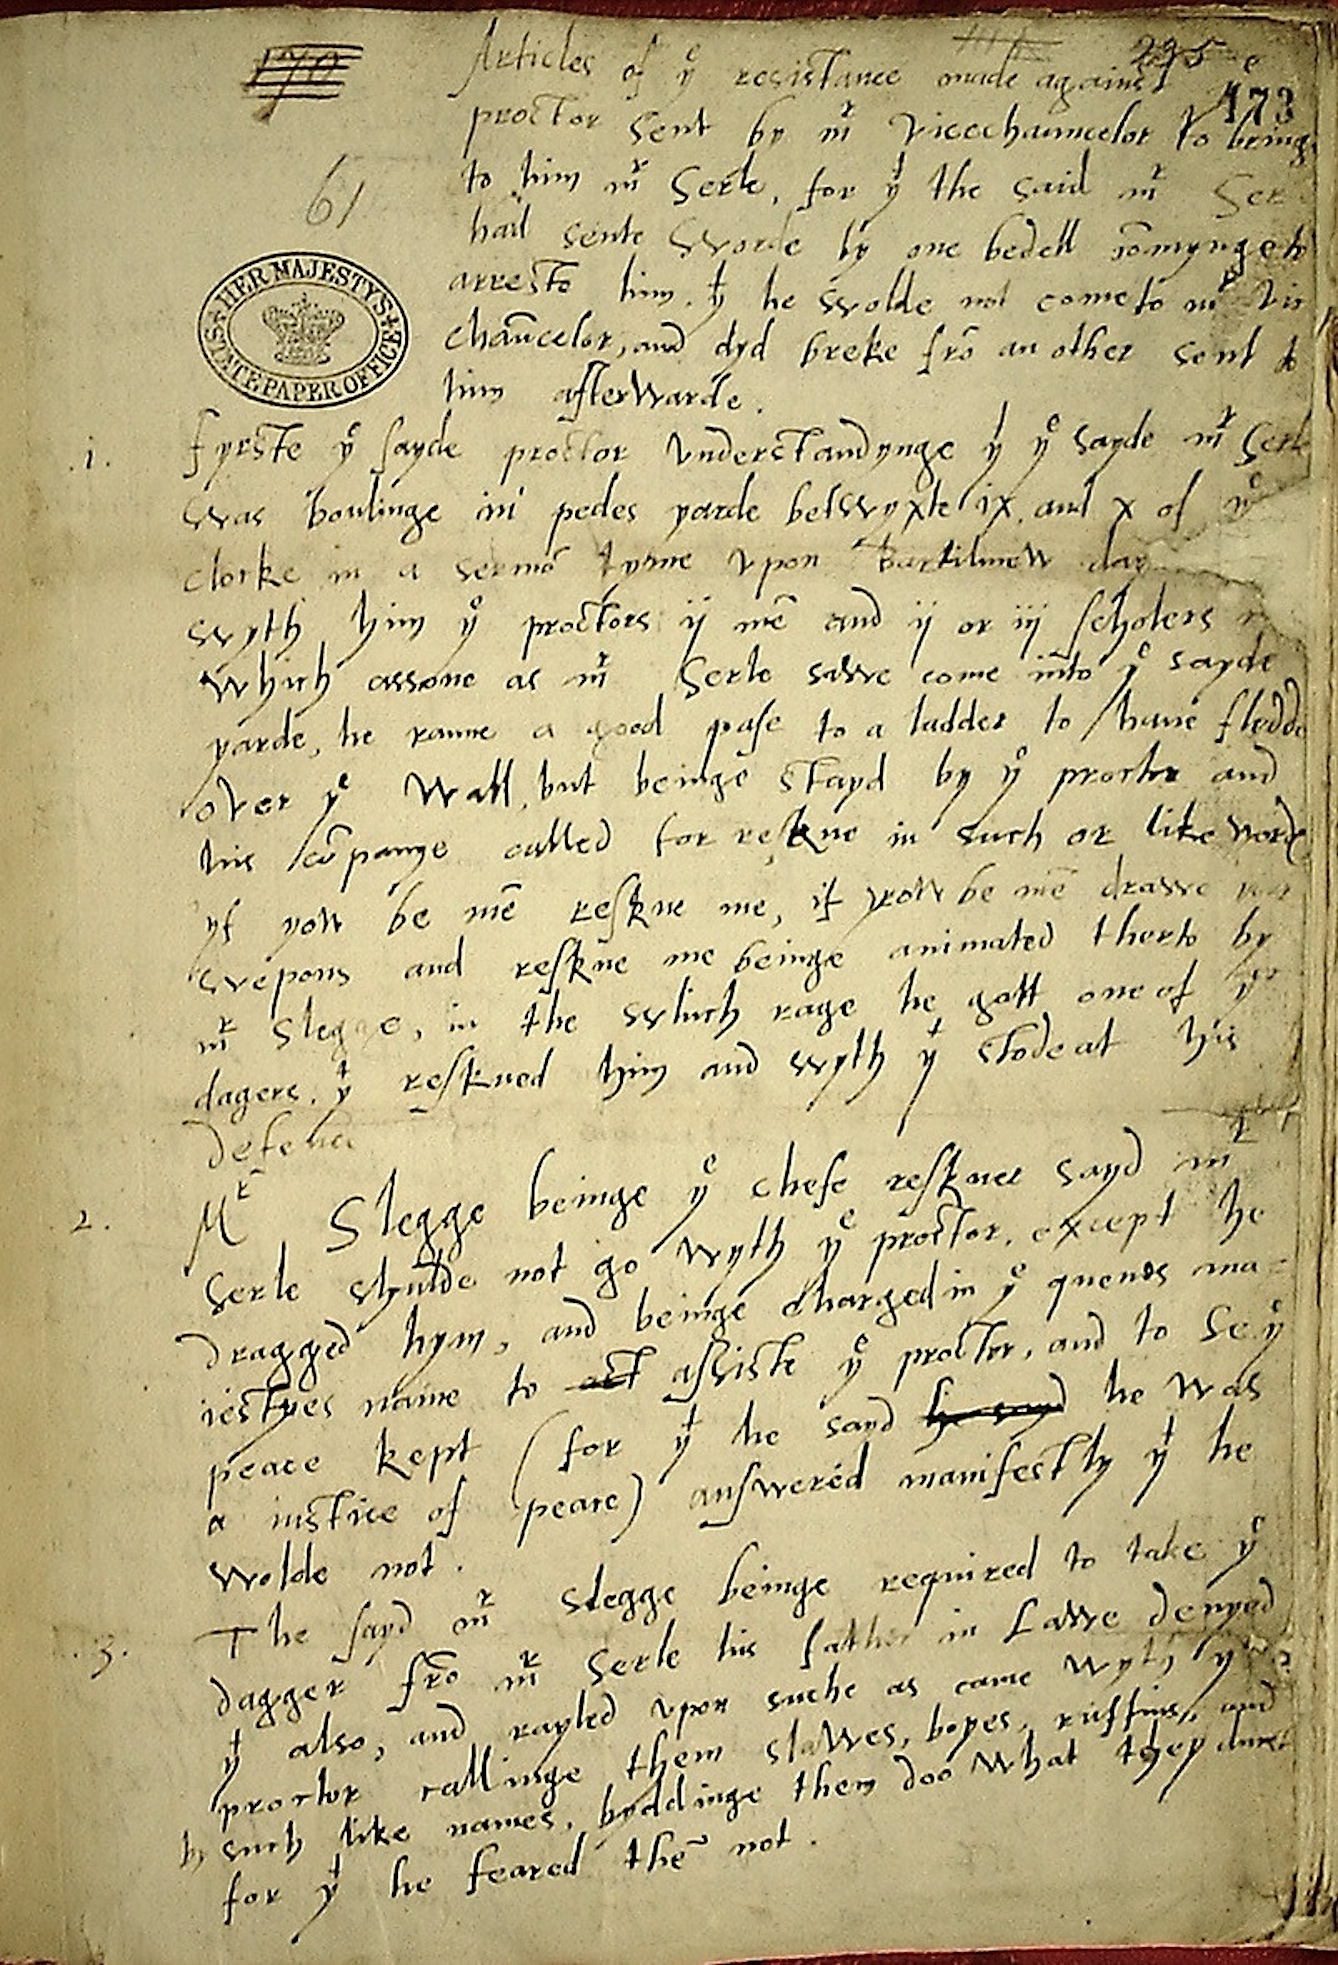 170
225
173
Articles of yͤ resistance made against yͤ
proctor sent by mʳ vicechauncelor to bringe
61
to him mʳ Serle, for yᵗ the said mʳ Ser
had sente worde by one bedell comynge to
arreste him, yᵗ he wolde not come to mʳ vic
HER MAJESTY'S STATE PAPER OFFICE
chācelor, and dyd breke frō an other sent to
him afterwarde.
.1. Fyrste yͤ sayde proctor understandynge yᵗ yͤ sayde mʳ Serle
was boulinge in pedes yarde betwyxte ix. and x of yͤ
clocke in a sermō tyme upon Bartilmew day
wyth him yͤ proctors ij mē and ij or iij scholers
which assone as mʳ Serle sawe come into yͤ sayde
yarde, he ranne a good pase to a ladder to have fledde
over yͤ wall, but beinge stayd by yͤ proctor and
his cōpanye called for reskue in such or like worde
yf yow be mē reskue me, if yow be mē drawe
wepons and reskue me beinge animated therto by
mʳ Slegge, in the which rage he gott one of
dagers, yᵗ reskued him and wyth yᵗ stode at his
defence
2. Mʳ Slegge beinge yͤ chefe reskuer sayd mʳ
Serle shulde not go wyth yͤ proctor, except he
dragged hym, and beinge charged in yͤ quenes ma
iestyes name to act assiste yͤ proctor, and to se yͤ
peace kept (for yᵗ he sayd he sayd he was
a iustice of peace) answered manifestly yᵗ he
wolde not.
.3. The sayd mʳ Slegge beinge required to take yͤ
dagger frō mʳ Serle his father in Lawe denyed
yᵗ also, and rayled upon suche as came wyth yͤ
proctor callinge them slawes, boyes, ruffins, and
by such like names, byddinge them doo what they durst
for yᵗ he feared thē not.